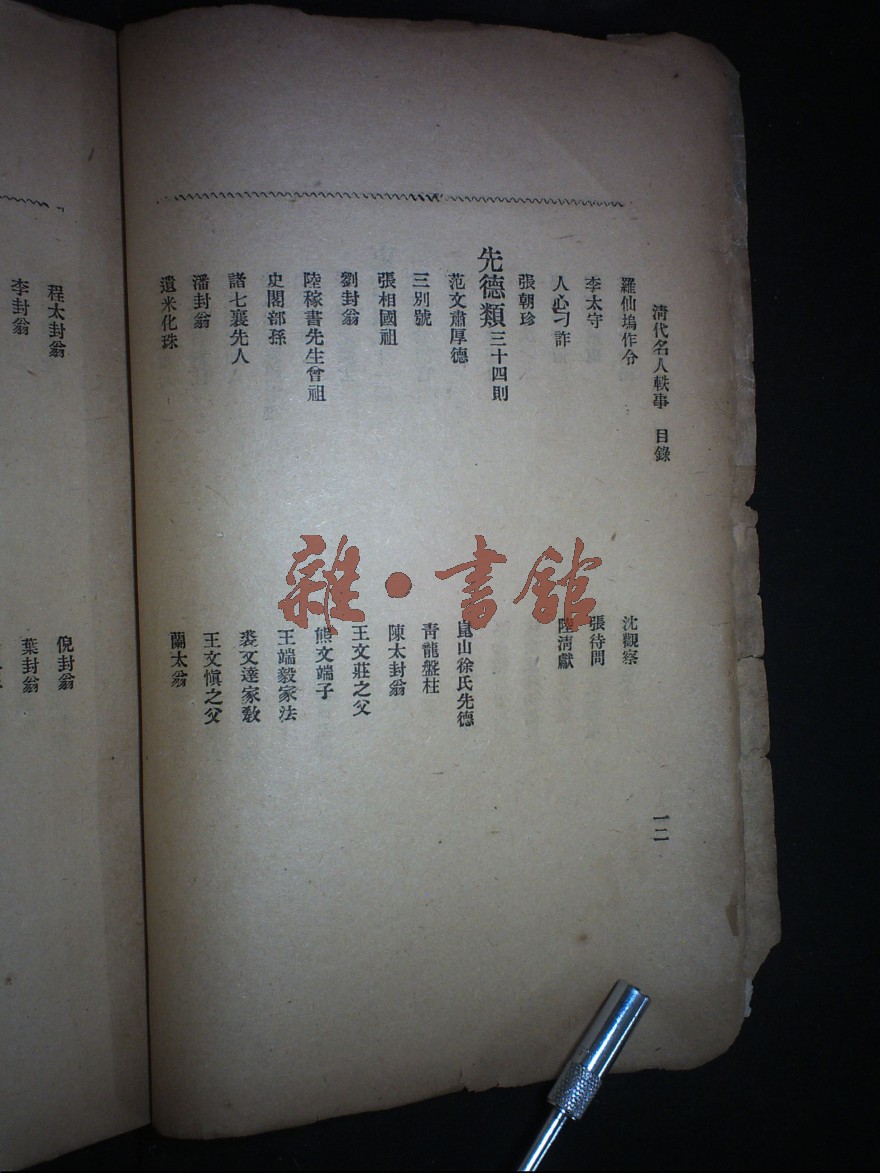 清代名人軼事 目錄 一二
羅仙塢作令 沈觀察
李太守 張待問
人心刁詐 陸清獻
張朝珍
先德類三十四則
范文肅厚德 崑山徐氏先德
三別號 青龍盤柱
張相國祖 陳太封翁
劉封翁 王文莊之父
陸稼書先生曾祖 熊文端子
史閣部孫 王端毅家法
諸七襄先人 裘文達家教
潘封翁 王文愼之父
遺米化珠 蘭太翁
程太封翁 倪封翁
李封翁 葉封翁
雜·書館